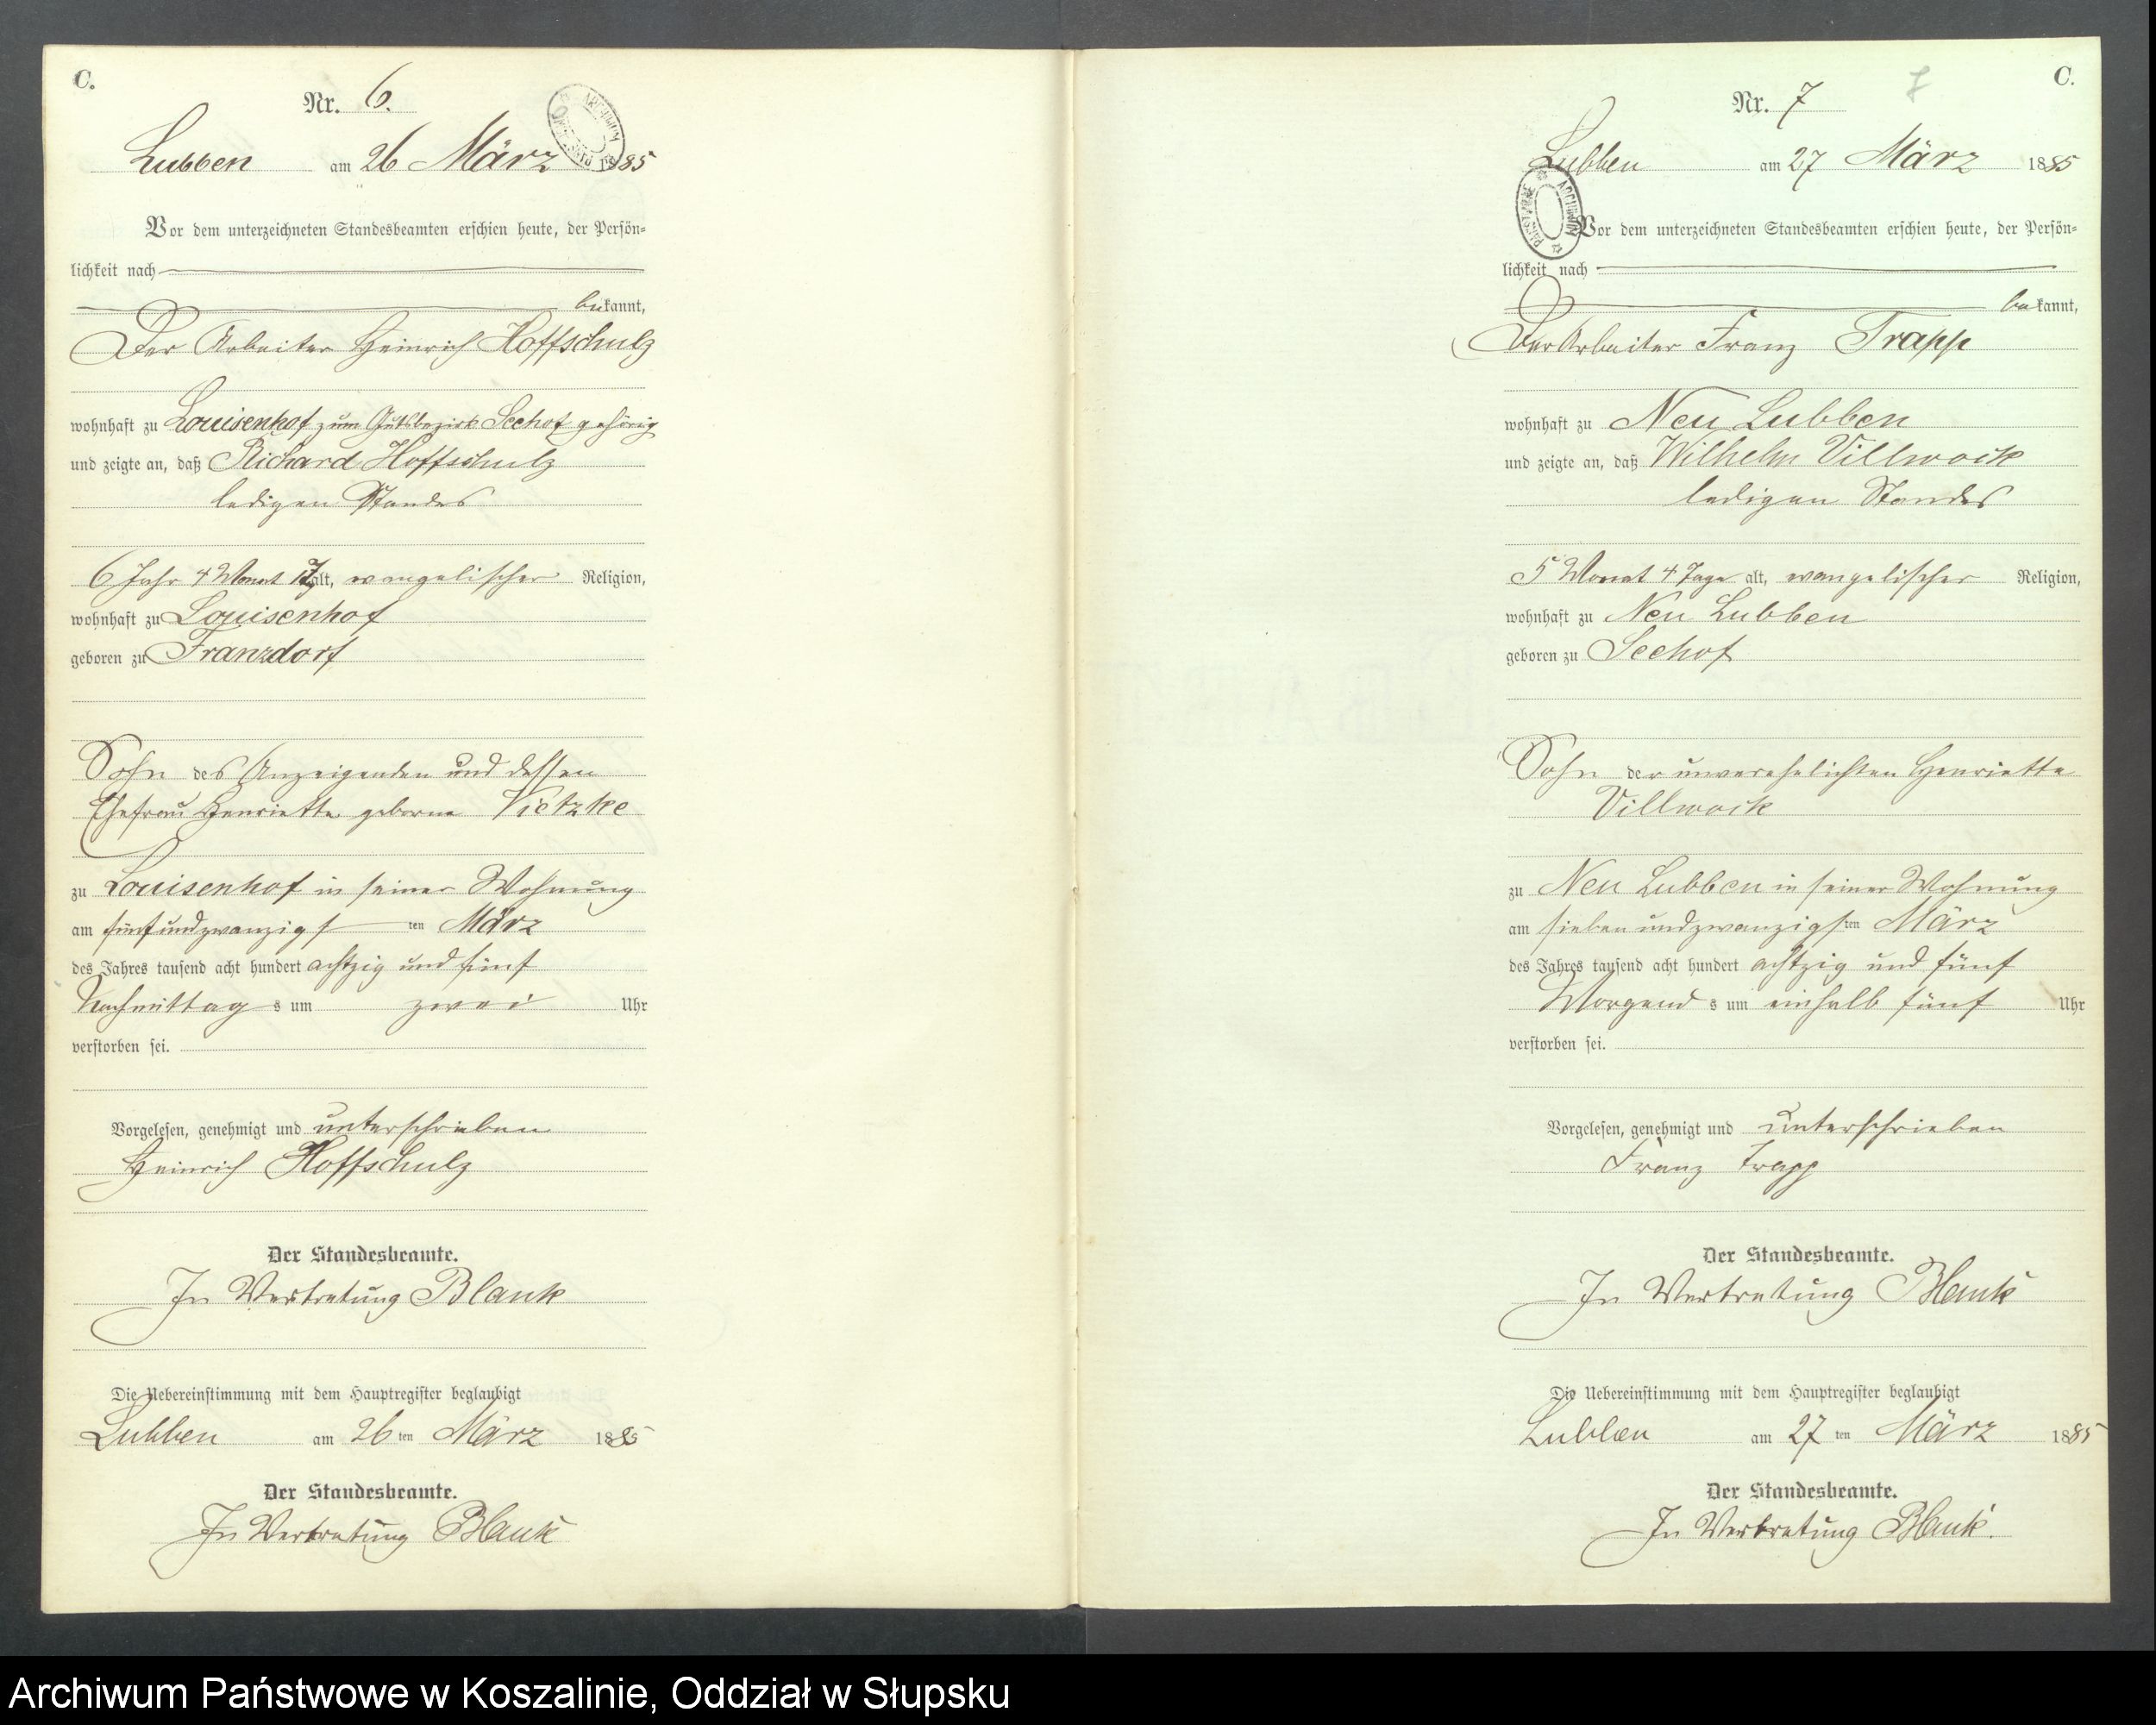 C.
Nr. 6.
Lubben am 26 März 1885
Vor dem unterzeichneten Standesbeamten erschien heute, der Persön-
lichkeit nach
bekannt,
Der Arbeiter Heinrich Hoffschulz
wohnhaft zu Louisenhof zum Gutsbezirk Seehof gehörig
und zeigte an, daß Richard Hoffschulz
ledigen Standes
6 Jahr 4 Monat 17 alt, evangelischer Religion,
wohnhaft zu Louisenhof
geboren zu Franzdorf
Sohn des Anzeigenden und dessen
Ehefrau Henriette geborne Vietzke
zu Louisenhof in seiner Wohnung
am fünfundzwanzigsten März
des Jahres tausend acht hundert achtzig und fünf
Nachmittags um zwei Uhr
verstorben sei.
Vorgelesen, genehmigt und unterschrieben
Heinrich Hoffschulz
Der Standesbeamte.
In Vertretung Blank
Die Uebereinstimmung mit dem Hauptregister beglaubigt
Lubben am 26ten März 1885
Der Standesbeamte.
In Vertretung Blank
7
C.
Nr. 7
Lubben am 27 März 1885
Vor dem unterzeichneten Standesbeamten erschien heute, der Persön-
lichkeit nach
bekannt,
Der Arbeiter Franz Trapp
wohnhaft zu Neu Lubben
und zeigte an, daß Wilhelm Villwock
ledigen Standes
5 Monat 4 Tage alt, evangelischer Religion,
wohnhaft zu Neu Lubben
geboren zu Seehof
Sohn der unverehelichten Henriette
Villwock
zu Neu Lubben in seiner Wohnung
am sieben undzwanzigsten März
des Jahres tausend acht hundert achtzig und fünf
Morgends um einhalb fünf Uhr
verstorben sei.
Vorgelesen, genehmigt und unterschrieben
Franz Trapp
Der Standesbeamte.
In Vertretung Blank
Die Uebereinstimmung mit dem Hauptregister beglaubigt
Lubben am 27ten März 1885
Der Standesbeamte.
In Vertretung Blank.
Archiwum Państwowe w Koszalinie, Oddział w Słupsku